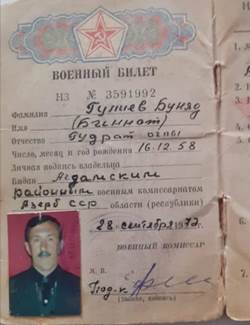 ВОЕННЫЙ БИЛЕТ
НЗ № 3591992
Фамилия Гулиев Буняд
Имя
Отчество Гудрат оглы
Число, месяц и год рождения 16.12.58
Личная подпись владельца
Выдан Агдамским
районным военным комиссариатом
Азерб ССР области (республики)
28 сентября
ВОЕННЫЙ КОМИССАР
М. П.